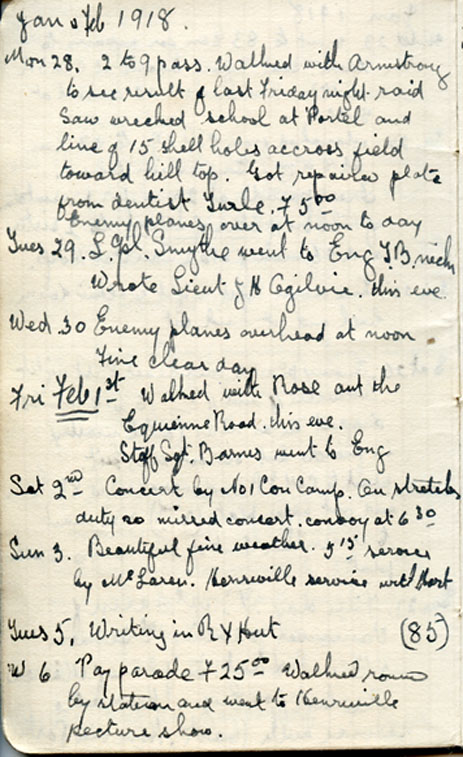 Jan & Feb 1918.
Mon 28. 2 to 9 pass. Walked with Armstrong
to see result of last Friday night raid
Saw wrecked school at Portel and
line of 15 shell holes accross field
toward hill top. Got repaired plate
from dentist Turle. F 5 00
Enemy planes over at noon to day
Tues 29. L. Cpl. Smythe went to Eng T.B.
Wrote Lieut J H Ogilvie. this eve.
Wed. 30 Enemy planes overhead at noon
Fine clear day
Fri Feb 1st Walked with Rose out the
Equienne Road. this eve.
Staff Sgt. Barnes went to Eng
Sat 2nd Concert by No 1 Con Camp. On stretcher
duty so missed consert. convoy at 6 30
Sun 3. Beautiful fine weather. 5 15 service
by McLaren. Henriville service with Hort
Tues 5. Writing in R X Hut (85)
W 6 Pay parade F 25 00 Walked round
by station and went to Henriville
pecture show.